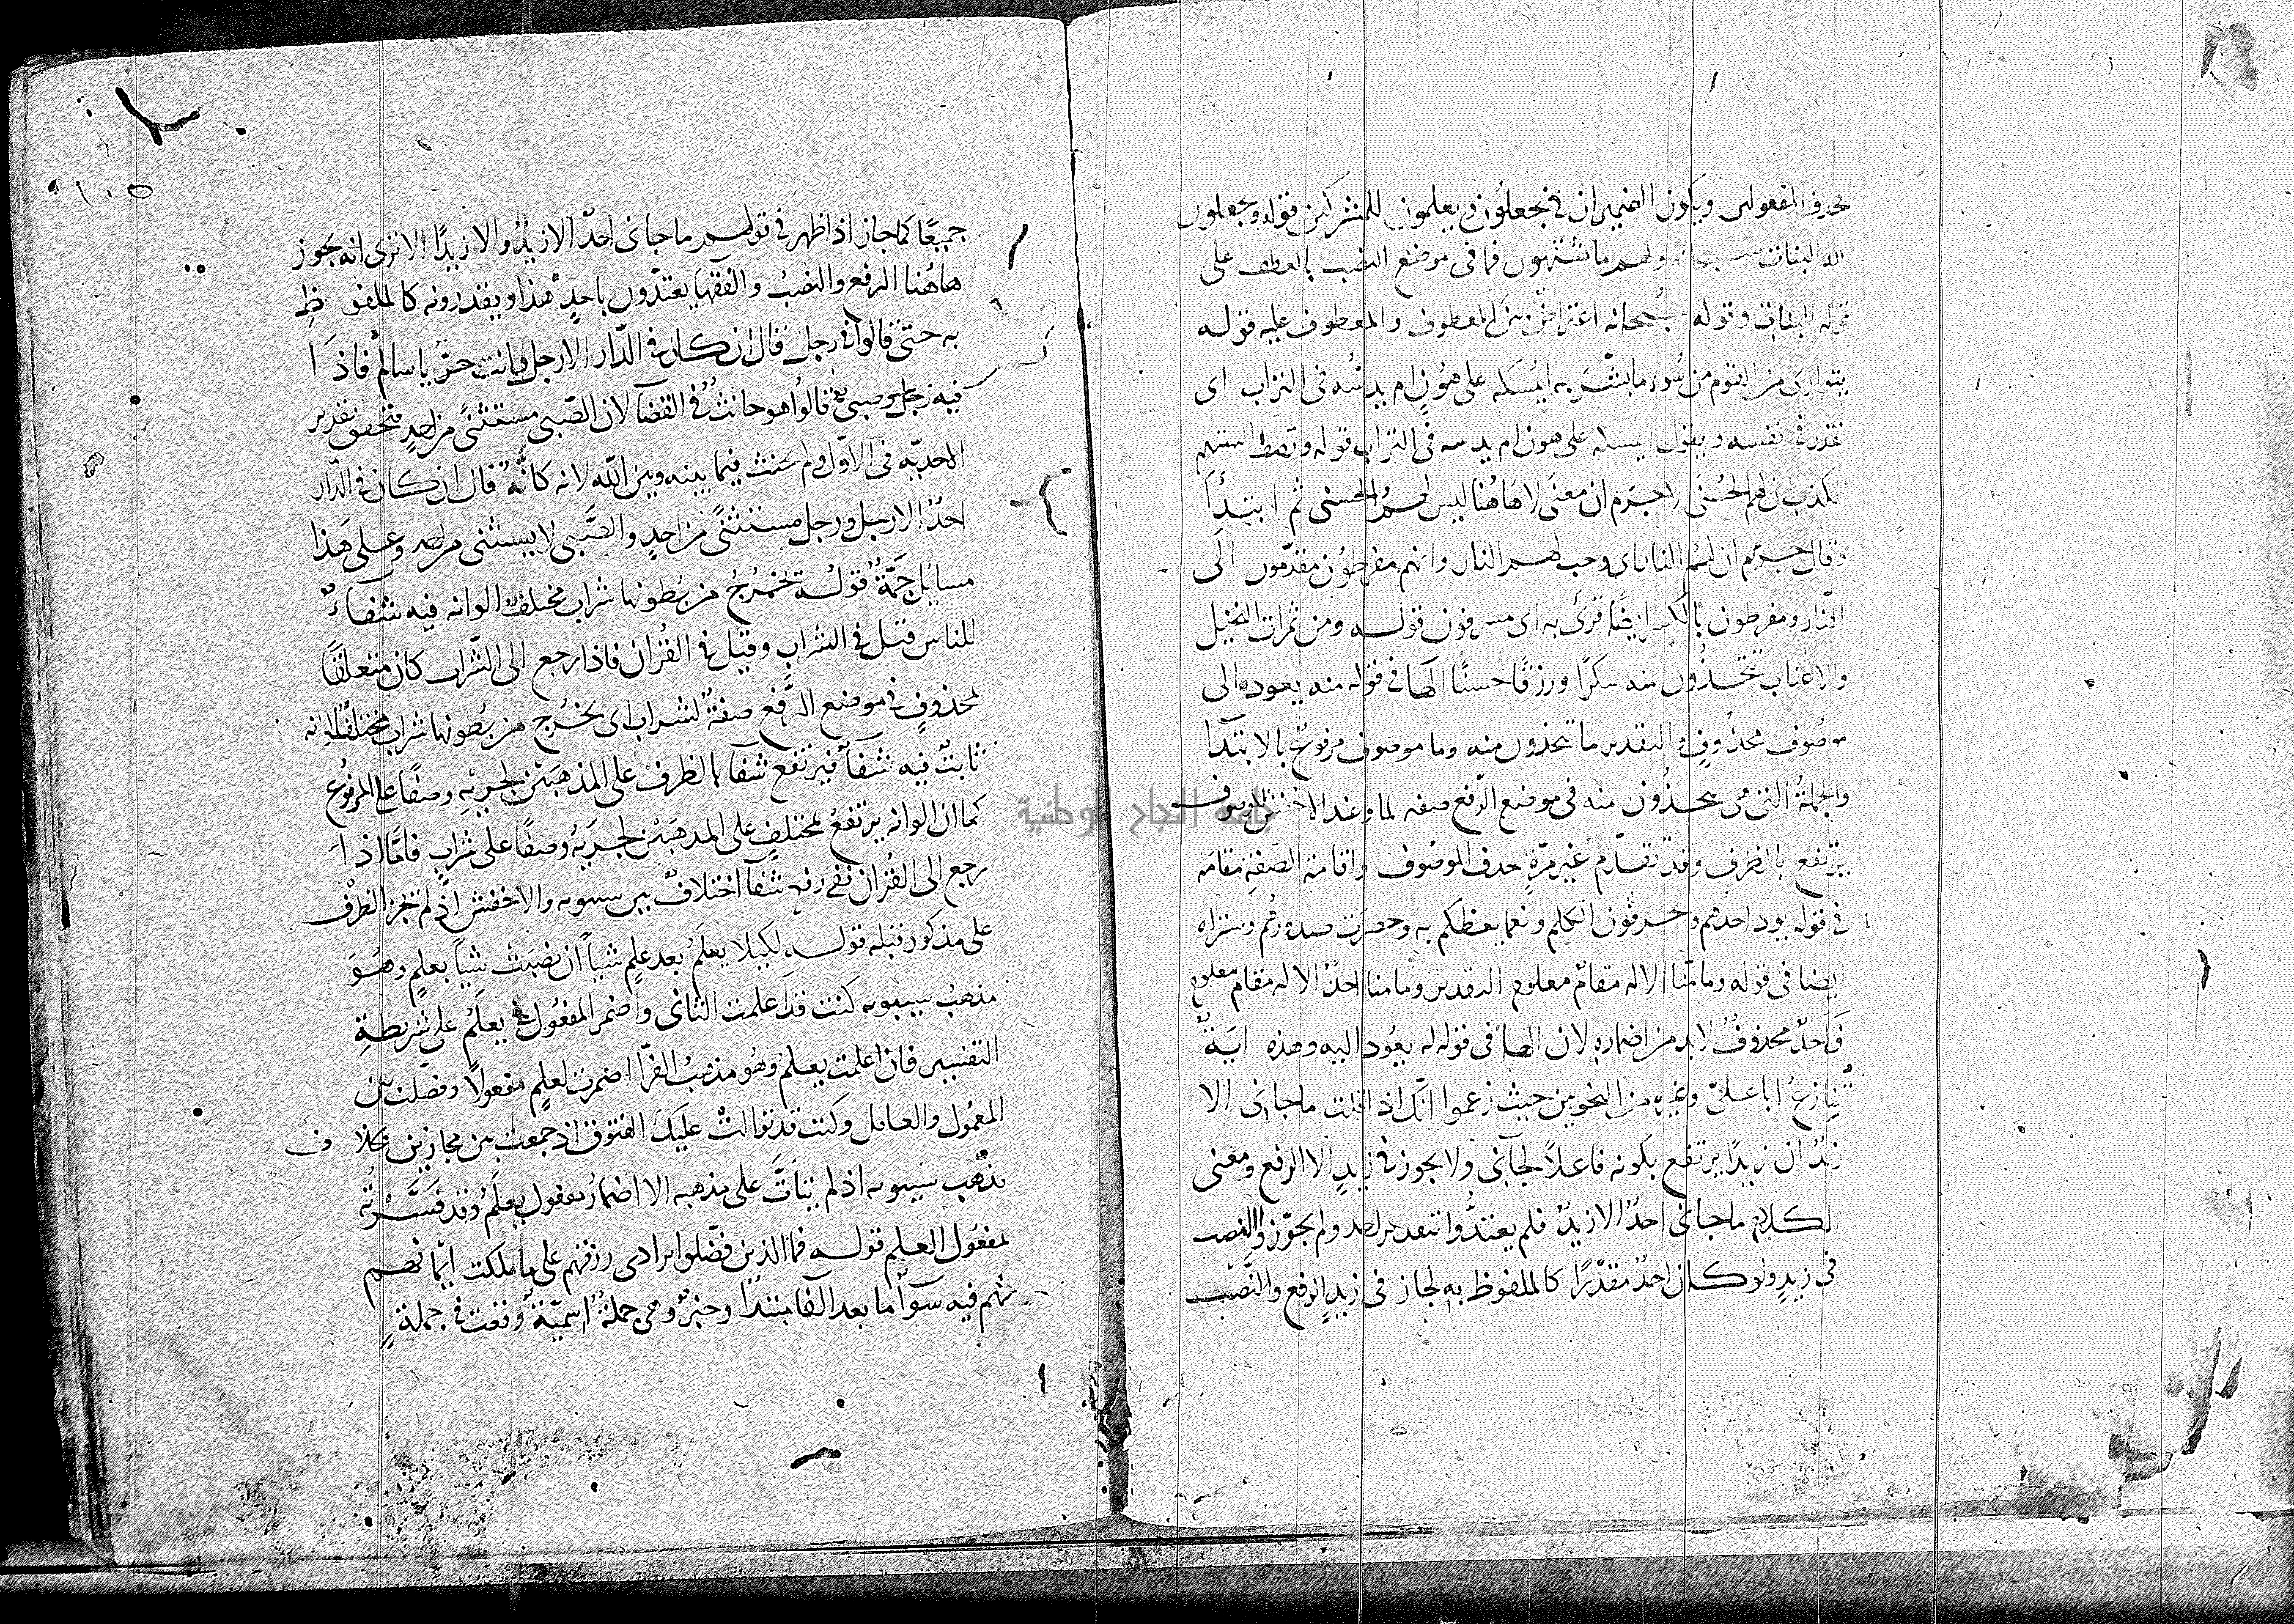 بحذف المفعولين ويكون الضميران في يجعلون ويعلمون للمشركين قوله ويجعلون
لله البنات سبحانه ولهم ما يشتهون فما في موضع النصب بالعطف على
قوله البنات وقوله سبحانه اعتراض بين المعطوف والمعطوف عليه قوله
يتوارى من القوم من سوء ما بشر به ايمسكه على هون ام يدسه في التراب اى
يقدر في نفسه ويقول ايمسكه على هون ام يدسه في التراب قوله وتصف السنتهم
الكذب ان لهم الحسنى لا جرم ان معنى لا هاهنا ليس لهم الحسنى ثم ابتدأ
وقال جرم ان لهم النار اى وجب لهم النار وانهم مفرطون مقدمون الى
النار ومفرطون بالكسر ايضا قرئ به اى مسرفون قوله ومن ثمرات النخيل
والاعناب تتخذون منه سكرا ورزقا حسنا الها في قوله منه يعود الى
موصوف محذوف والتقدير ما تتخذون منه وما موصوف مرفوع بالابتدآ
والجملة التي هي تتخذون منه في موضع الرفع صفه لما وعند الاخفش الموصوف
يرتفع بالظرف وقد تقدم غير مرة حذف الموصوف واقامة الصفة مقامه
في قوله يود احدهم ويحرفون الكلم ونعما يعظكم به وحصرت صدورهم وستراه
ايضا في قوله وما منا الا له مقام معلوم التقدير وما منا احد الا له مقام معلوم
فاحد محذوف لا بد من اضماره لان الهآ في قوله له يعود اليه وهذه آية
تنازع ابا على وغيره من النحويين حيث زعموا انك اذا قلت ما جاءنى الا
زيد ان زيدا يرتفع بكونه فاعلا لجآنى ولا يجوز في زيد الا الرفع ومعنى
الكلام ما جانى احد الا زيد فلم يعتدوا بتقدير احد ولم يجوزوا النصب
في زيد ولو كان احد مقدرا كالملفوظ به لجاز في زيد الرفع والنصب
١٠٥
جميعا كما جاز اذ اظهر في قولهم ما جانى احد الا زيد والا زيدا الا ترى انه يجوز
هاهنا الرفع والنصب والفقها يعتدون باحد هذا ويقدرونه كالملفوظ
به حتى قالوا في رجل قال ان كان في الدار الا رجل فانت حر يا سالم فاذا
فيه رجل وصبى قالوا هو حانث في القضآ لان الصبى مستثنى من احد فتحقق تقدير
الاحدية في الاول ولم يحنث فيما بينه وبين الله لانه كانه قال ان كان في الدار
احد الا رجل ورجل مستثنى من احد والصبى لا يستثنى من احد وعلى هذا
مسايل جمة قوله تخرج من بطونها شراب مختلف الوانه فيه شفاء
للناس قيل في الشراب وقيل في القران فاذا رجع الى الشراب كان متعلقا
بمحذوف في موضع الرفع صفة لشراب اى يخرج من بطونها شراب مختلف الوانه
ثابت فيه شفآ فيرتفع شفآ بالظرف على المذهبين لجريه وصفا على المرفوع
كما ان الوانه يرتفع بمختلف على المذهبين لجريه وصفا على شراب فاما اذا
رجع الى القران ففى رفع شفآ اختلاف بين سيبويه والاخفش اذ لم يجز الظرف
على مذكور قبله قوله لكيلا يعلم بعد علم شيا ان نصبت شيا بعلم وهو
مذهب سيبويه كنت قد اعلمت الثانى واضمر المفعول في يعلم على شريطة
التفسير فان اعلمت يعلم وهو مذهب الفرا اضمرت لعلم مفعولا وفصلت بين
المعمول والعامل وكنت قد توالت عليك الفتوق اذ جمعت بين مجازين فكلا
مذهب سيبويه اذ لم يتأت على مذهبه الا اضمار مفعول يعلم وقد فسرته
بمفعول العلم قوله فما الذين فضلوا برادى رزقهم على ما ملكت ايمانهم
فهم فيه سوآ ما بعد الفا مبتدا وخبر وهي جملة اسمية وقعت في جملة
جامعة النجاح الوطنية